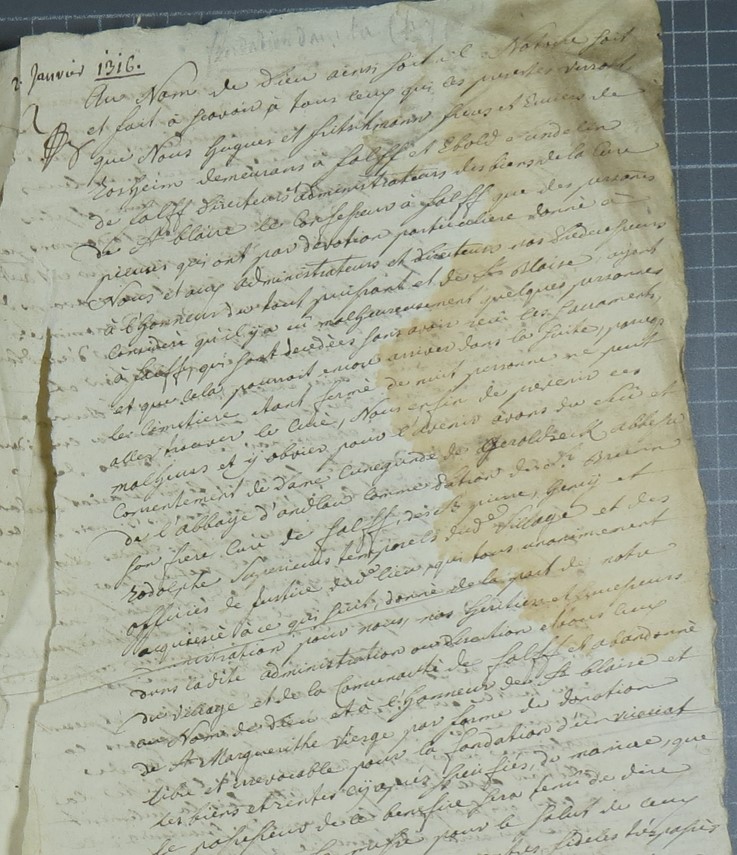 fondation dans la
2. Janvier 1316.
Au Nom de Dieu ainsi soit il Notoire soit
et fait à scavoir à tous ceux qui ces presentes verront
que Nous Hugues et frères et
Rosheim demeurans à Valff et Ebold
de Valff Directeurs administrateurs des biens de la Cure
de St. blaise le Confesseur à Valff que des personnes
pieuses qui ont par devotion particuliere donné à
Nous et aux administrateurs et Directeurs nos
à l'honneur du tout puissant et de St. Blaise, ayant
consideré qu'il y a eu malheureusement quelques personnes
à Valff, qui sont decedées sans avoir recu les Sacraments,
et que cela pourroit encor arriver dans la suite, parce
le Cimetiere etant fermé de nuit personne ne peut
aller trouver le Curé, Nous enfin de prevenir ces
malheurs et y obvier pour l'avenir avons du et
Consentement de dame Cunegunde de Geroldseck abbesse
de l'abbaye d'andlau
son frère Curé de Valff, des et
Rodolphe Superieurs temporels dud. Village et des
officiés de Justice dud. lieu, qui tous unanimement
acquiescé à ce qui suit, donné de la part de notre
pour nous, nos heritiers et
dans la dite administration ou direction et tous ceux
du village et de la Communauté de Valff et abandonné
au Nom de Dieu et à l'honneur de St. blaise et
de Ste Marguerithe Vierge par forme de donation
libre et irrevocable pour la fondation d'un vicariat
les biens et rentes cy après specifiés, de maniere, que
le possesseur de ce benefice sera tenu de dire
messe pour le Salut de ceux
fideles trépassés